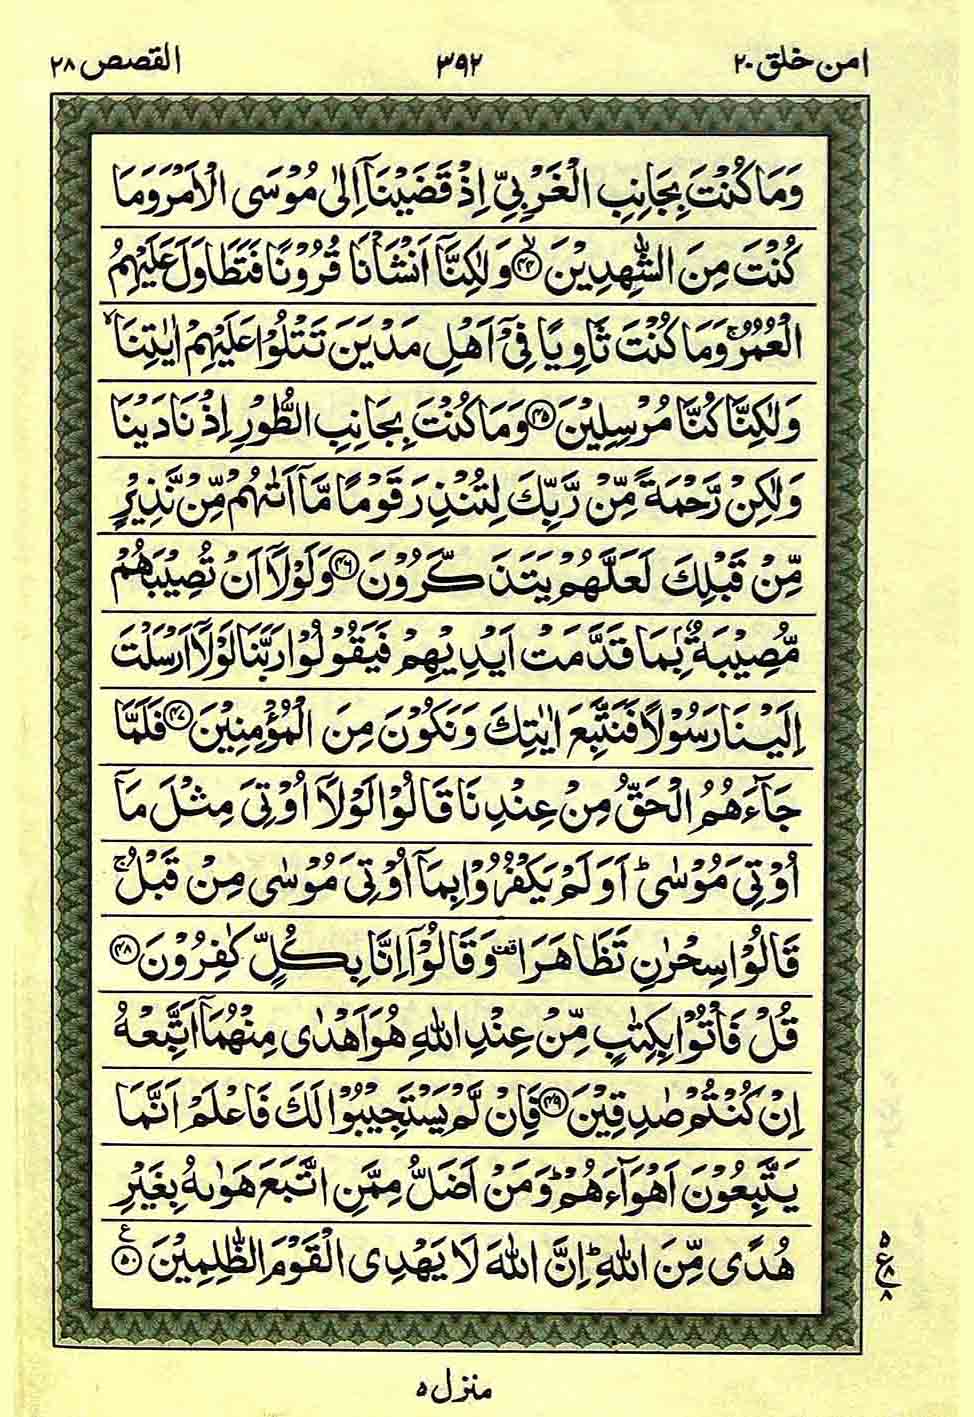 امن خلق ٢٠
٣٩٢
القصص ٢٨
وَمَا كُنْتَ بِجَانِبِ الْغَرْبِيِّ اِذْ قَضَيْنَاۤ اِلٰى مُوْسَى الْاَمْرَ وَمَا
كُنْتَ مِنَ الشّٰهِدِيْنَۙ ﴿٤٤﴾ وَلٰكِنَّاۤ اَنْشَاْنَا قُرُوْنًا فَتَطَاوَلَ عَلَيْهِمُ
الْعُمُرُۚ وَمَا كُنْتَ ثَاوِيًا فِيْۤ اَهْلِ مَدْيَنَ تَتْلُوْا عَلَيْهِمْ اٰيٰتِنَاۙ
وَلٰكِنَّا كُنَّا مُرْسِلِيْنَ ﴿٤٥﴾ وَمَا كُنْتَ بِجَانِبِ الطُّوْرِ اِذْ نَادَيْنَا
وَلٰكِنْ رَّحْمَةً مِّنْ رَّبِّكَ لِتُنْذِرَ قَوْمًا مَّاۤ اَتٰىهُمْ مِّنْ نَّذِيْرٍ
مِّنْ قَبْلِكَ لَعَلَّهُمْ يَتَذَكَّرُوْنَ ﴿٤٦﴾ وَلَوْلَاۤ اَنْ تُصِيْبَهُمْ
مُّصِيْبَةٌۢ بِمَا قَدَّمَتْ اَيْدِيْهِمْ فَيَقُوْلُوْا رَبَّنَا لَوْلَاۤ اَرْسَلْتَ
اِلَيْنَا رَسُوْلًا فَنَتَّبِعَ اٰيٰتِكَ وَنَكُوْنَ مِنَ الْمُؤْمِنِيْنَ ﴿٤٧﴾ فَلَمَّا
جَآءَهُمُ الْحَقُّ مِنْ عِنْدِنَا قَالُوْا لَوْلَاۤ اُوْتِيَ مِثْلَ مَاۤ
اُوْتِيَ مُوْسٰىؕ اَوَلَمْ يَكْفُرُوْا بِمَاۤ اُوْتِيَ مُوْسٰى مِنْ قَبْلُۚ
قَالُوْا سِحْرٰنِ تَظَاهَرَاࣞ وَقَالُوْۤا اِنَّا بِكُلٍّ كٰفِرُوْنَ ﴿٤٨﴾
قُلْ فَاْتُوْا بِكِتٰبٍ مِّنْ عِنْدِ اللّٰهِ هُوَ اَهْدٰى مِنْهُمَاۤ اَتَّبِعْهُ
اِنْ كُنْتُمْ صٰدِقِيْنَ ﴿٤٩﴾ فَاِنْ لَّمْ يَسْتَجِيْبُوْا لَكَ فَاعْلَمْ اَنَّمَا
يَتَّبِعُوْنَ اَهْوَآءَهُمْؕ وَمَنْ اَضَلُّ مِمَّنِ اتَّبَعَ هَوٰىهُ بِغَيْرِ
هُدًى مِّنَ اللّٰهِؕ اِنَّ اللّٰهَ لَا يَهْدِى الْقَوْمَ الظّٰلِمِيْنَ ﴿٥٠﴾ ع
٥
ع ٨
٨
منزل ٥